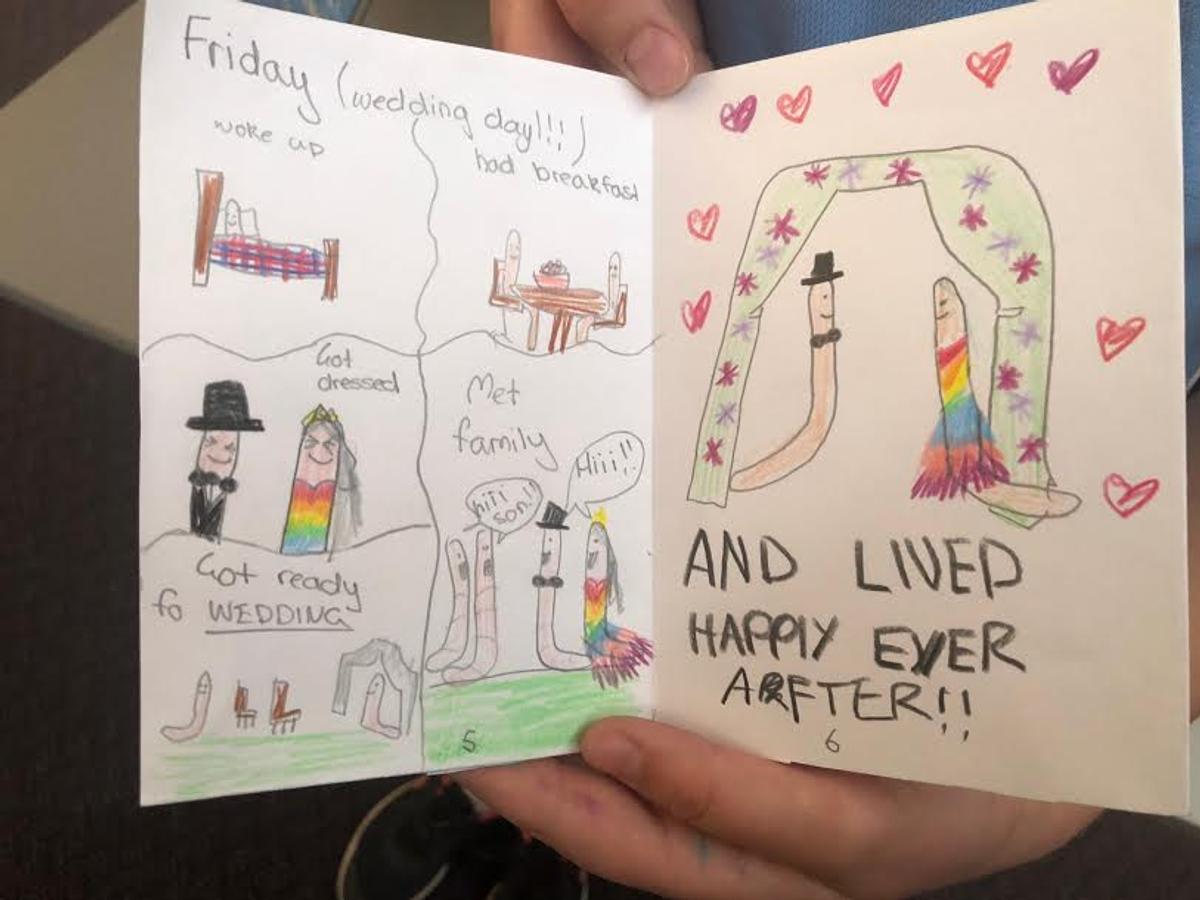 Friday (wedding day!!!)
woke up
had breakfast
Got
dressed
Met
family
hii!
son!!
Hiii!!
Got ready
fo WEDDING
5
AND LIVED
HAPPIY EVER
ARFTER!!
6